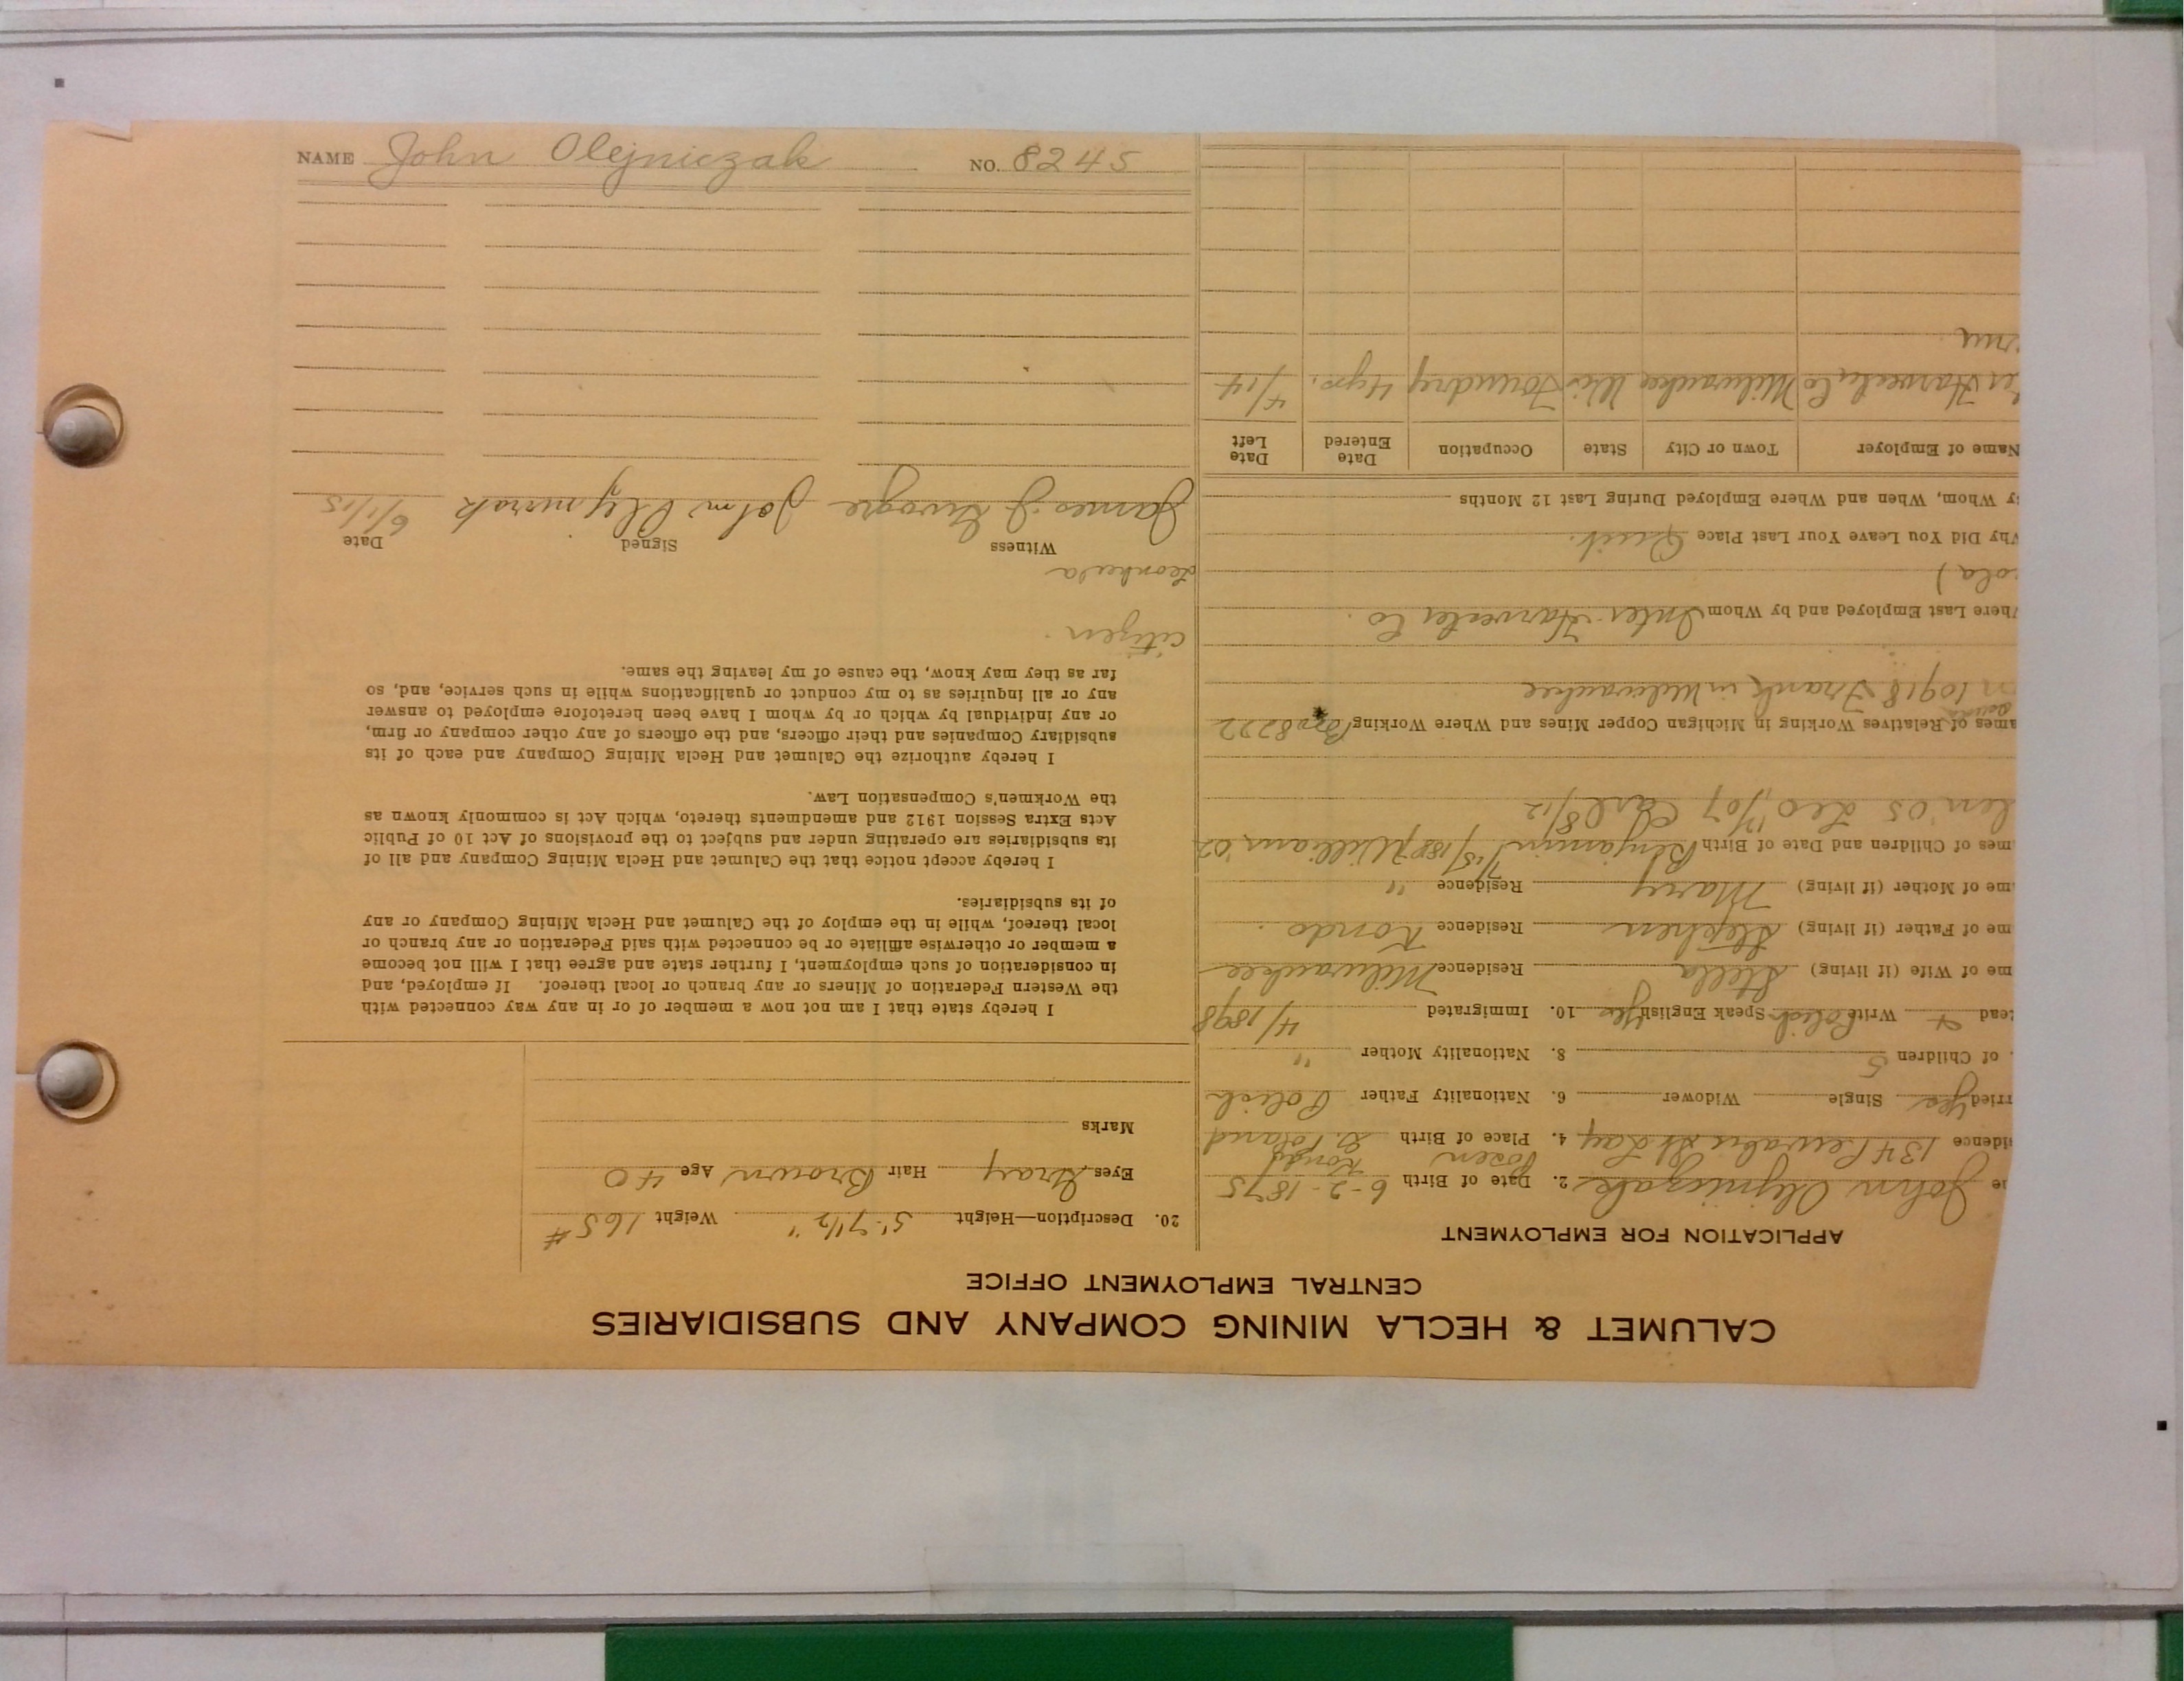 NAME John Olejniczak NO. 8245
CALUMET & HECLA MINING COMPANY AND SUBSIDIARIES
CENTRAL EMPLOYMENT OFFICE
APPLICATION FOR EMPLOYMENT
me John Olejniczak 2. Date of Birth 6-2-1875
Posen
idence 134 St 4. Place of Birth G. Poland
rried Yes Single Widower 6. Nationality Father Polish
. of Children 5 8. Nationality Mother "
ead Write Polish Speak English Yes 10. Immigrated 4/1898
me of Wife (if living) Stella Residence Milwaukee
me of Father (if living) Stephen Residence Kondo
me of Mother (if living) Mary Residence "
mes of Children and Date of Birth Benjamin William '02
len '05 Leo 11/07 Carl 8/12
ames of Relatives Working in Michigan Copper Mines and Where Working 8222
10918 Frank in Milwaukee
here Last Employed and by Whom Inter. Harvester Co.
ola)
hy Did You Leave Your Last Place Quit.
y Whom, When and Where Employed During Last 12 Months
Name of Employer Town or City State Occupation Date Entered Date Left
er Harvester Co Milwaukee Wis Foundry 4 yrs. 4/14
20. Description—Height 5'-7 1/2" Weight 165#
Eyes Gray Hair Brown Age 40
Marks
I hereby state that I am not now a member of or in any way connected with
the Western Federation of Miners or any branch or local thereof. If employed, and
in consideration of such employment, I further state and agree that I will not become
a member or otherwise affiliate or be connected with said Federation or any branch or
local thereof, while in the employ of the Calumet and Hecla Mining Company or any
of its subsidiaries.
I hereby accept notice that the Calumet and Hecla Mining Company and all of
its subsidiaries are operating under and subject to the provisions of Act 10 of Public
Acts Extra Session 1912 and amendments thereto, which Act is commonly known as
the Workmen's Compensation Law.
I hereby authorize the Calumet and Hecla Mining Company and each of its
subsidiary Companies and their officers, and the officers of any other company or firm,
or any individual by which or by whom I have been heretofore employed to answer
any or all inquiries as to my conduct or qualifications while in such service, and, so
far as they may know, the cause of my leaving the same.
citizen
Witness Signed Date
James J John 6/1/15